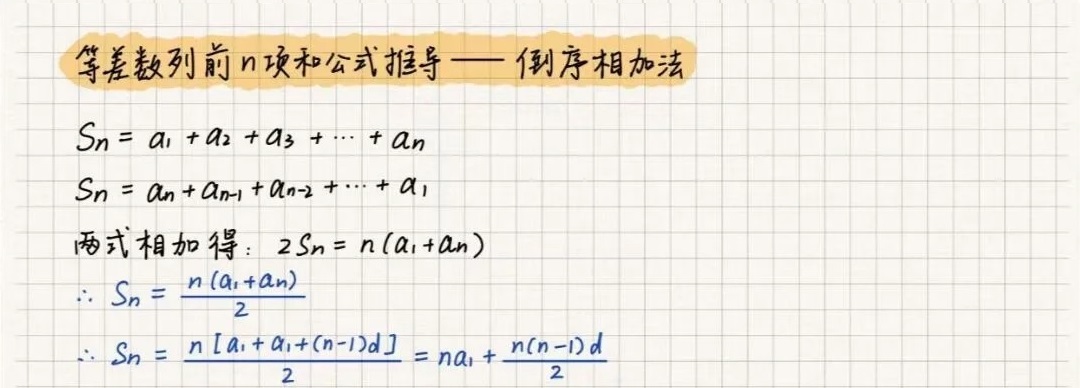 等差数列前n项和公式推导——倒序相加法
Sn = a₁ + a₂ + a₃ + ··· + an
Sn = an + an-1 + an-2 + ··· + a₁
两式相加得: 2Sn = n(a₁+an)
∴ Sn = n(a₁+an)/2
∴ Sn = n[a₁+a₁+(n-1)d]/2 = na₁ + n(n-1)d/2